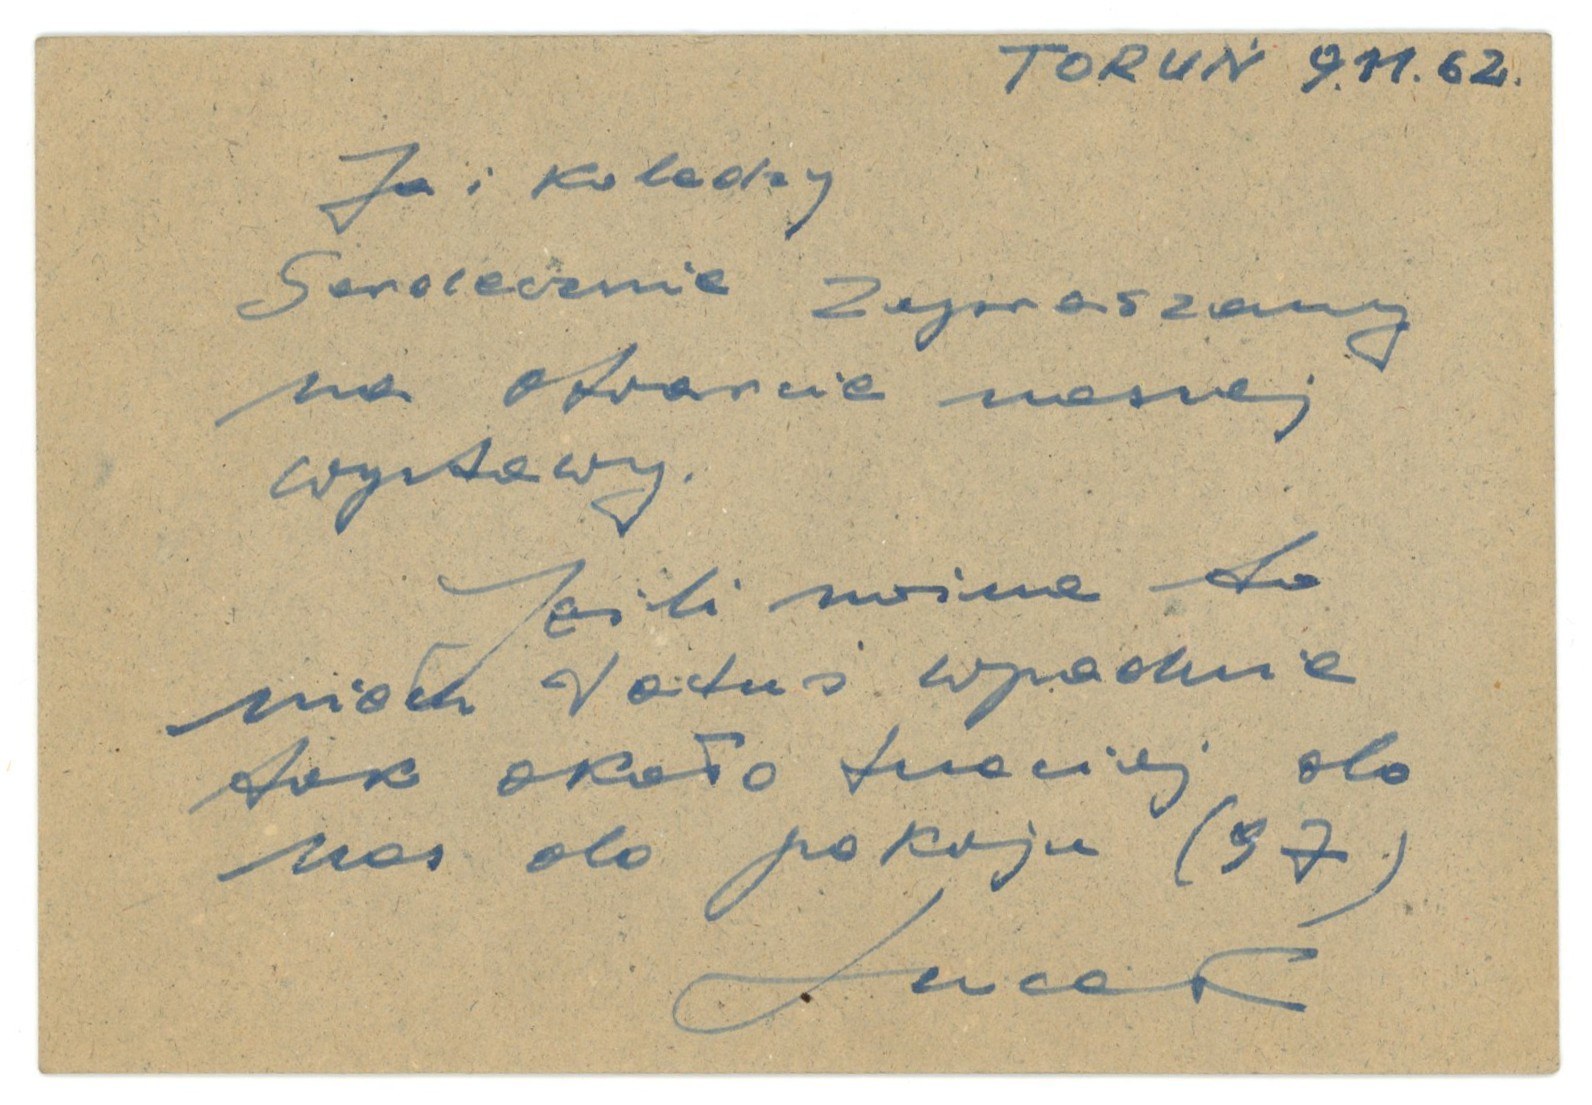 TORUŃ 9.11.62.
Ja i koledzy
Serdecznie zapraszamy
na otwarcie naszej
wystawy.
Jeśli można to
niech Vatuś wpadnie
tak około trzeciej do
nas do pokoju (97)